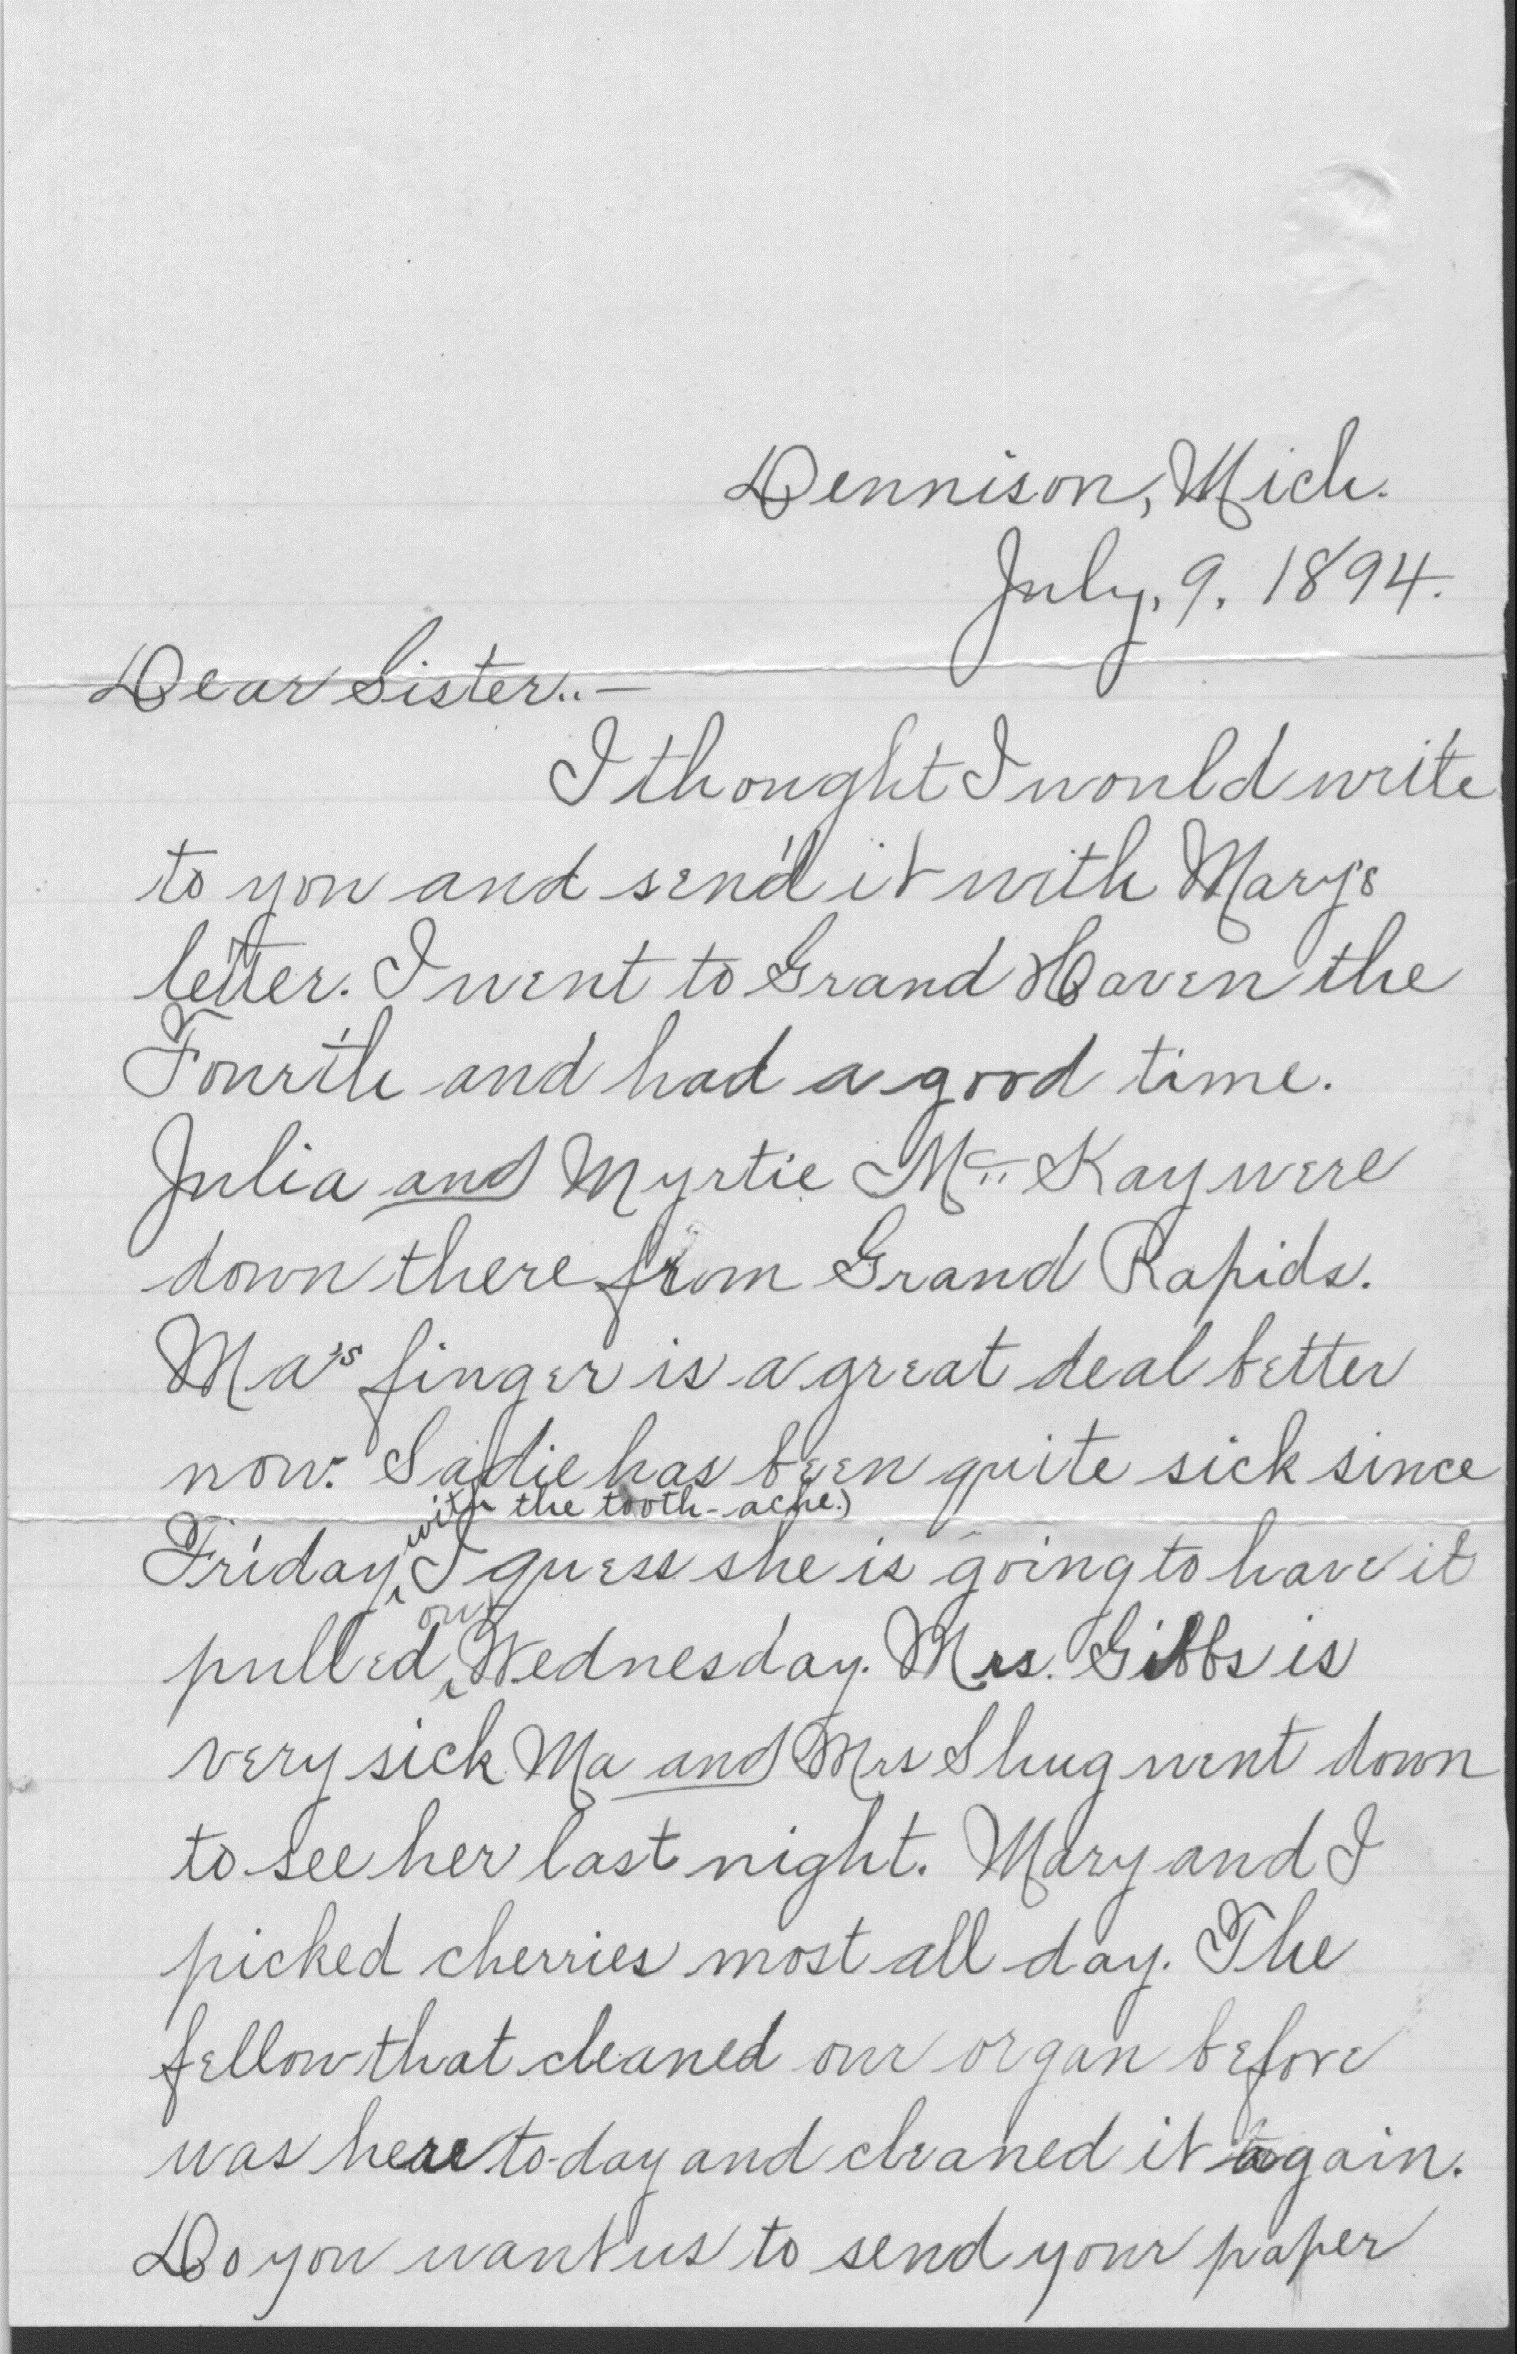 Dennison, Mich.
July, 9, 1894.
Dear Sister..—
I thought I would write
to you and send it with Mary's
letter. I went to Grand Haven the
Fourth and had a good time.
Julia and Myrtie Mc Kay were
down there from Grand Rapids.
Ma's finger is a great deal better
now. Sadie has been quite sick since
with the tooth-ache.)
Friday, I guess she is going to have it
out
pulled Wednesday. Mrs. Gibbs is
very sick Ma and Mrs Shug went down
to see her last night. Mary and I
picked cherries most all day. The
fellow that cleaned our organ before
was here to-day and cleaned it again.
Do you want us to send your paper